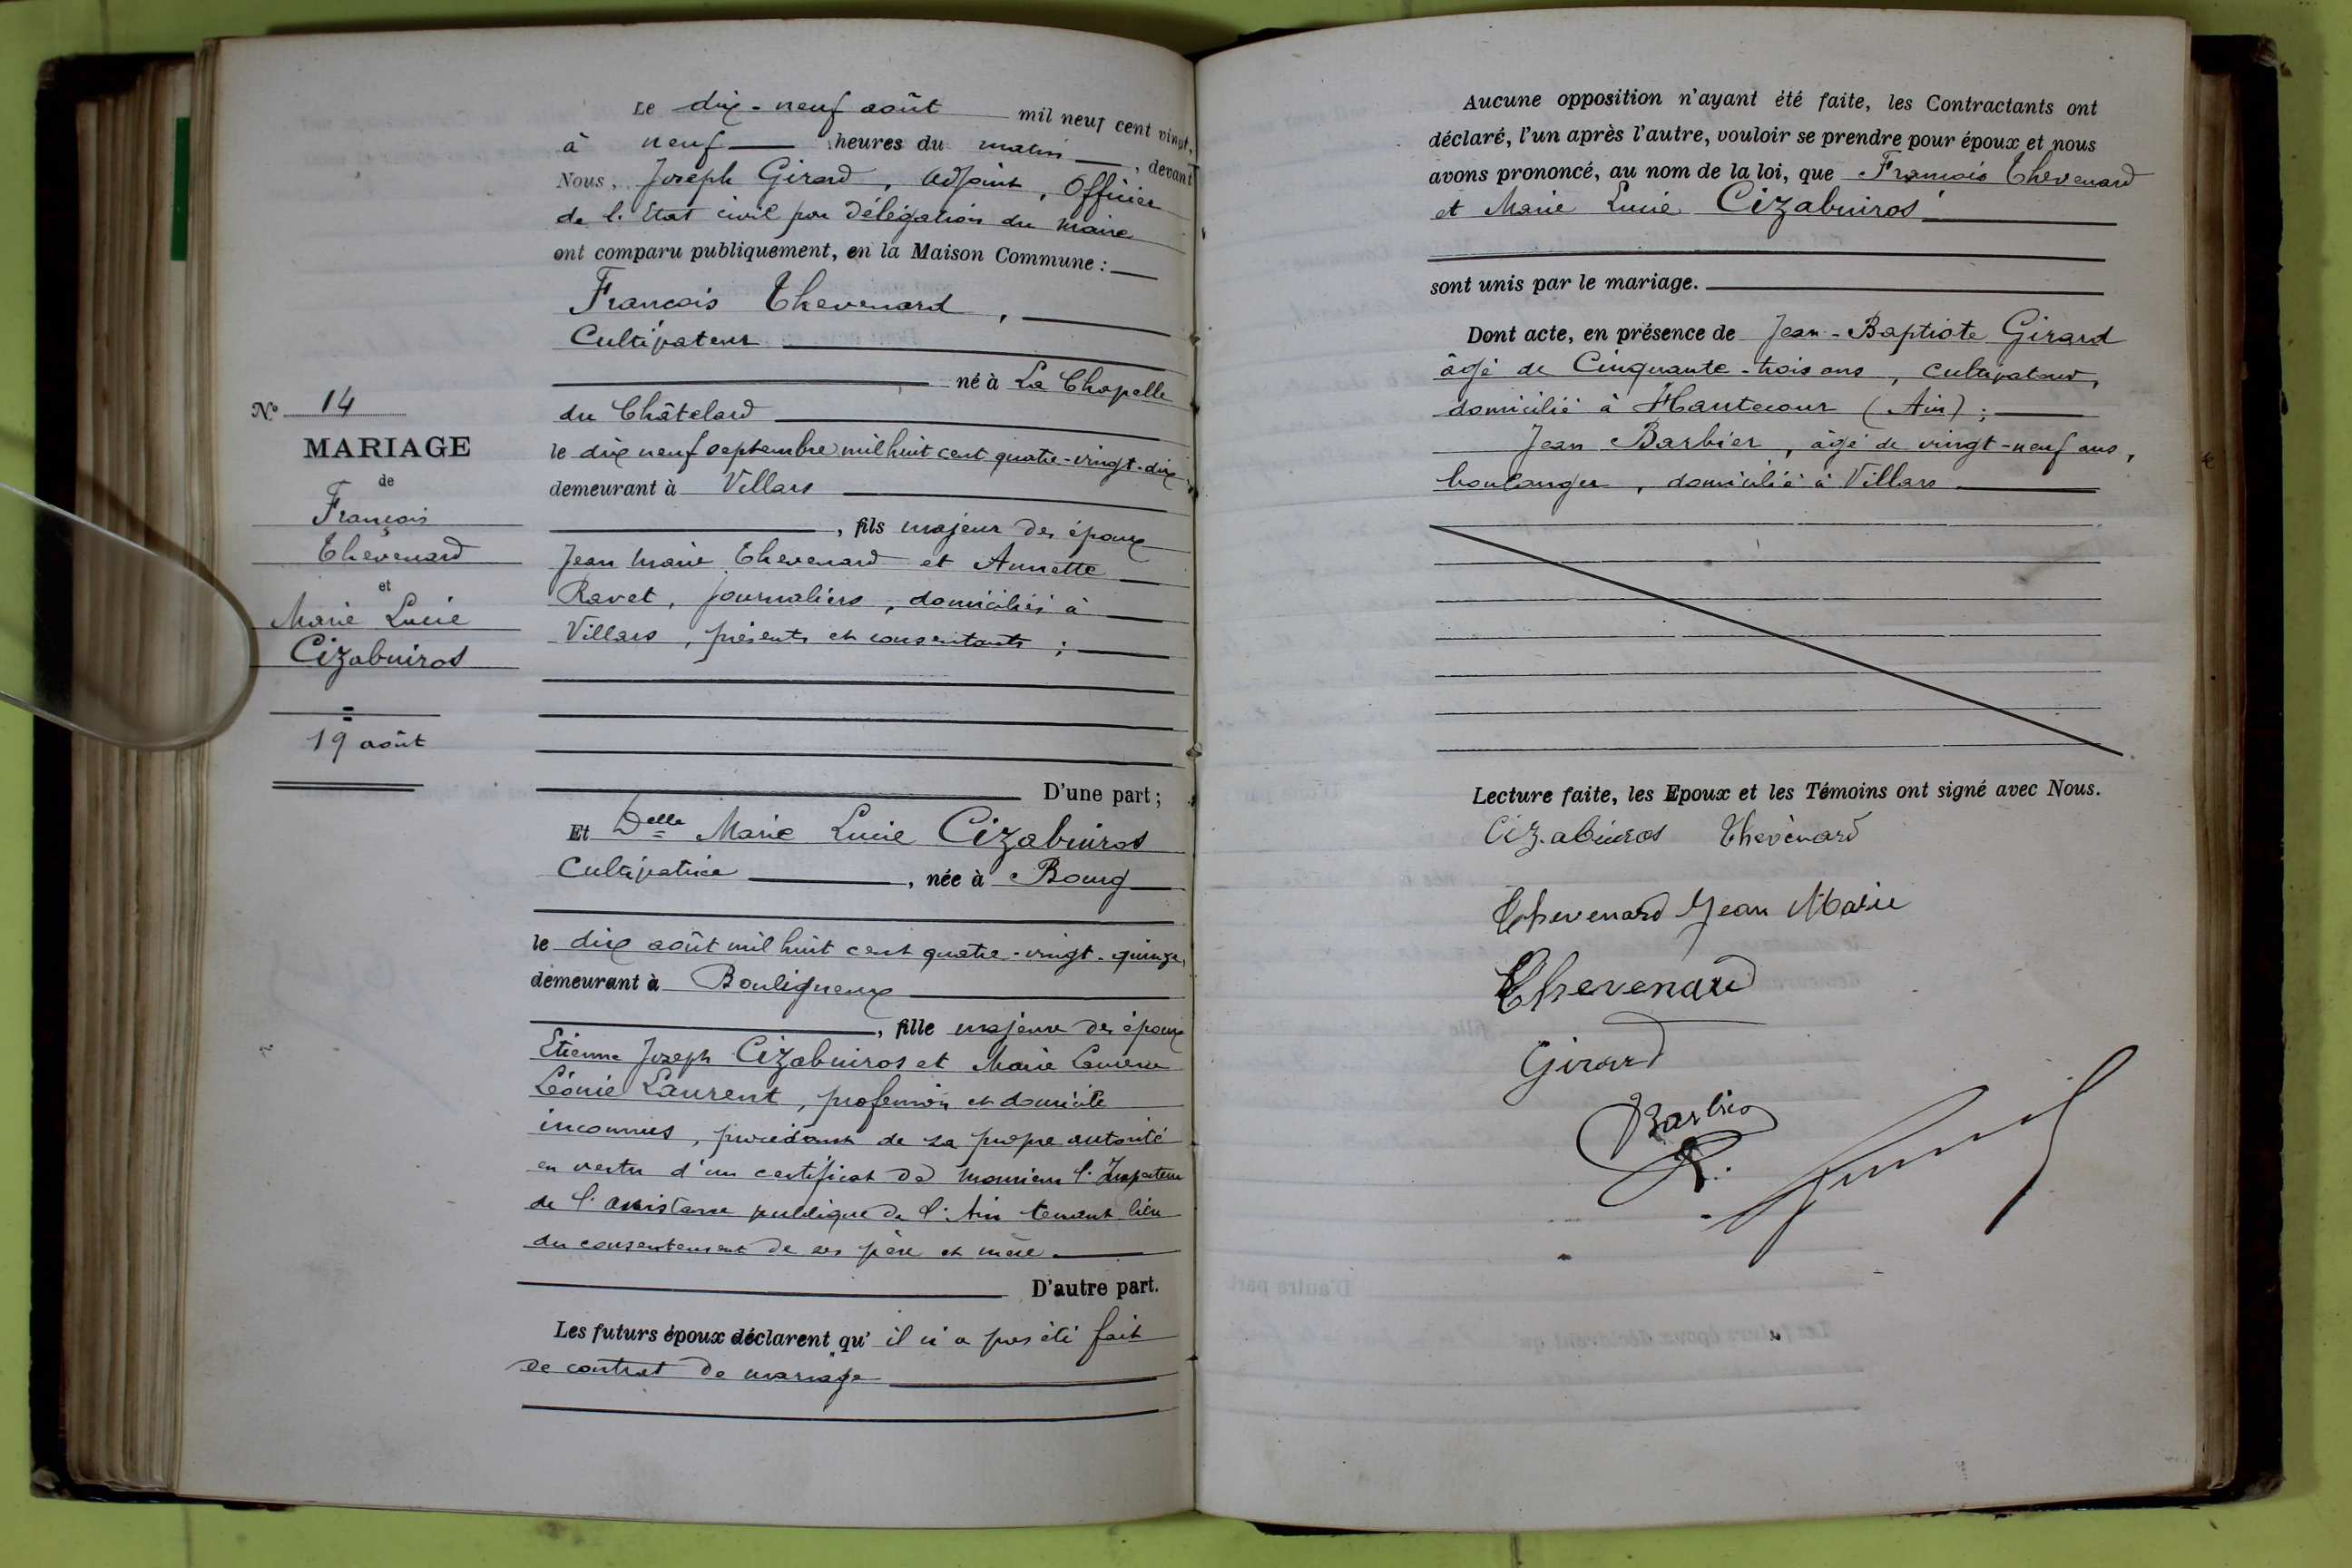 Le dix-neuf août mil neuf cent vingt,
à neuf heures du matin, devant
Nous, Joseph Girard, adjoint, Officier
de l'Etat civil par délégation du Maire
ont comparu publiquement, en la Maison Commune :
François Thevenard,
Cultivateur
né à La Chapelle
du Châtelard
le dix neuf septembre mil huit cent quatre-vingt-dix
demeurant à Villars
, fils majeur des époux
Jean Marie Thevenard et Annette
Ravet, journaliers, domiciliés à
Villars, présents et consentants ;
D'une part ;
Et Delle Marie Lucie Cizabuiros
Cultivatrice, née à Bourg
le dix août mil huit cent quatre-vingt-quinze,
demeurant à Bouligneux
, fille majeure des époux
Etienne Joseph Cizabuiros et Marie
Léonie Laurent, profession et domicile
inconnus, procédant de sa propre autorité
en vertu d'un certificat de Monsieur l'Inspecteur
de l'assistance publique de l'Ain tenant lieu
du consentement de ses père et mère
D'autre part.
Les futurs époux déclarent qu'il n'a pas été fait
de contrat de mariage
N° 14
MARIAGE
de
François
Thevenard
et
Marie Lucie
Cizabuiros
19 août
Aucune opposition n'ayant été faite, les Contractants ont
déclaré, l'un après l'autre, vouloir se prendre pour époux et nous
avons prononcé, au nom de la loi, que François Thevenard
et Marie Lucie Cizabuiros
sont unis par le mariage.
Dont acte, en présence de Jean-Baptiste Girard
âgé de Cinquante-trois ans, cultivateur,
domicilié à Hautecour (Ain) ;
Jean Barbier, âgé de vingt-neuf ans,
boulanger, domicilié à Villars
Lecture faite, les Epoux et les Témoins ont signé avec Nous.
Cizabuiros Thevenard
Thevenard Jean Marie
Thevenard
Girard
Barbier